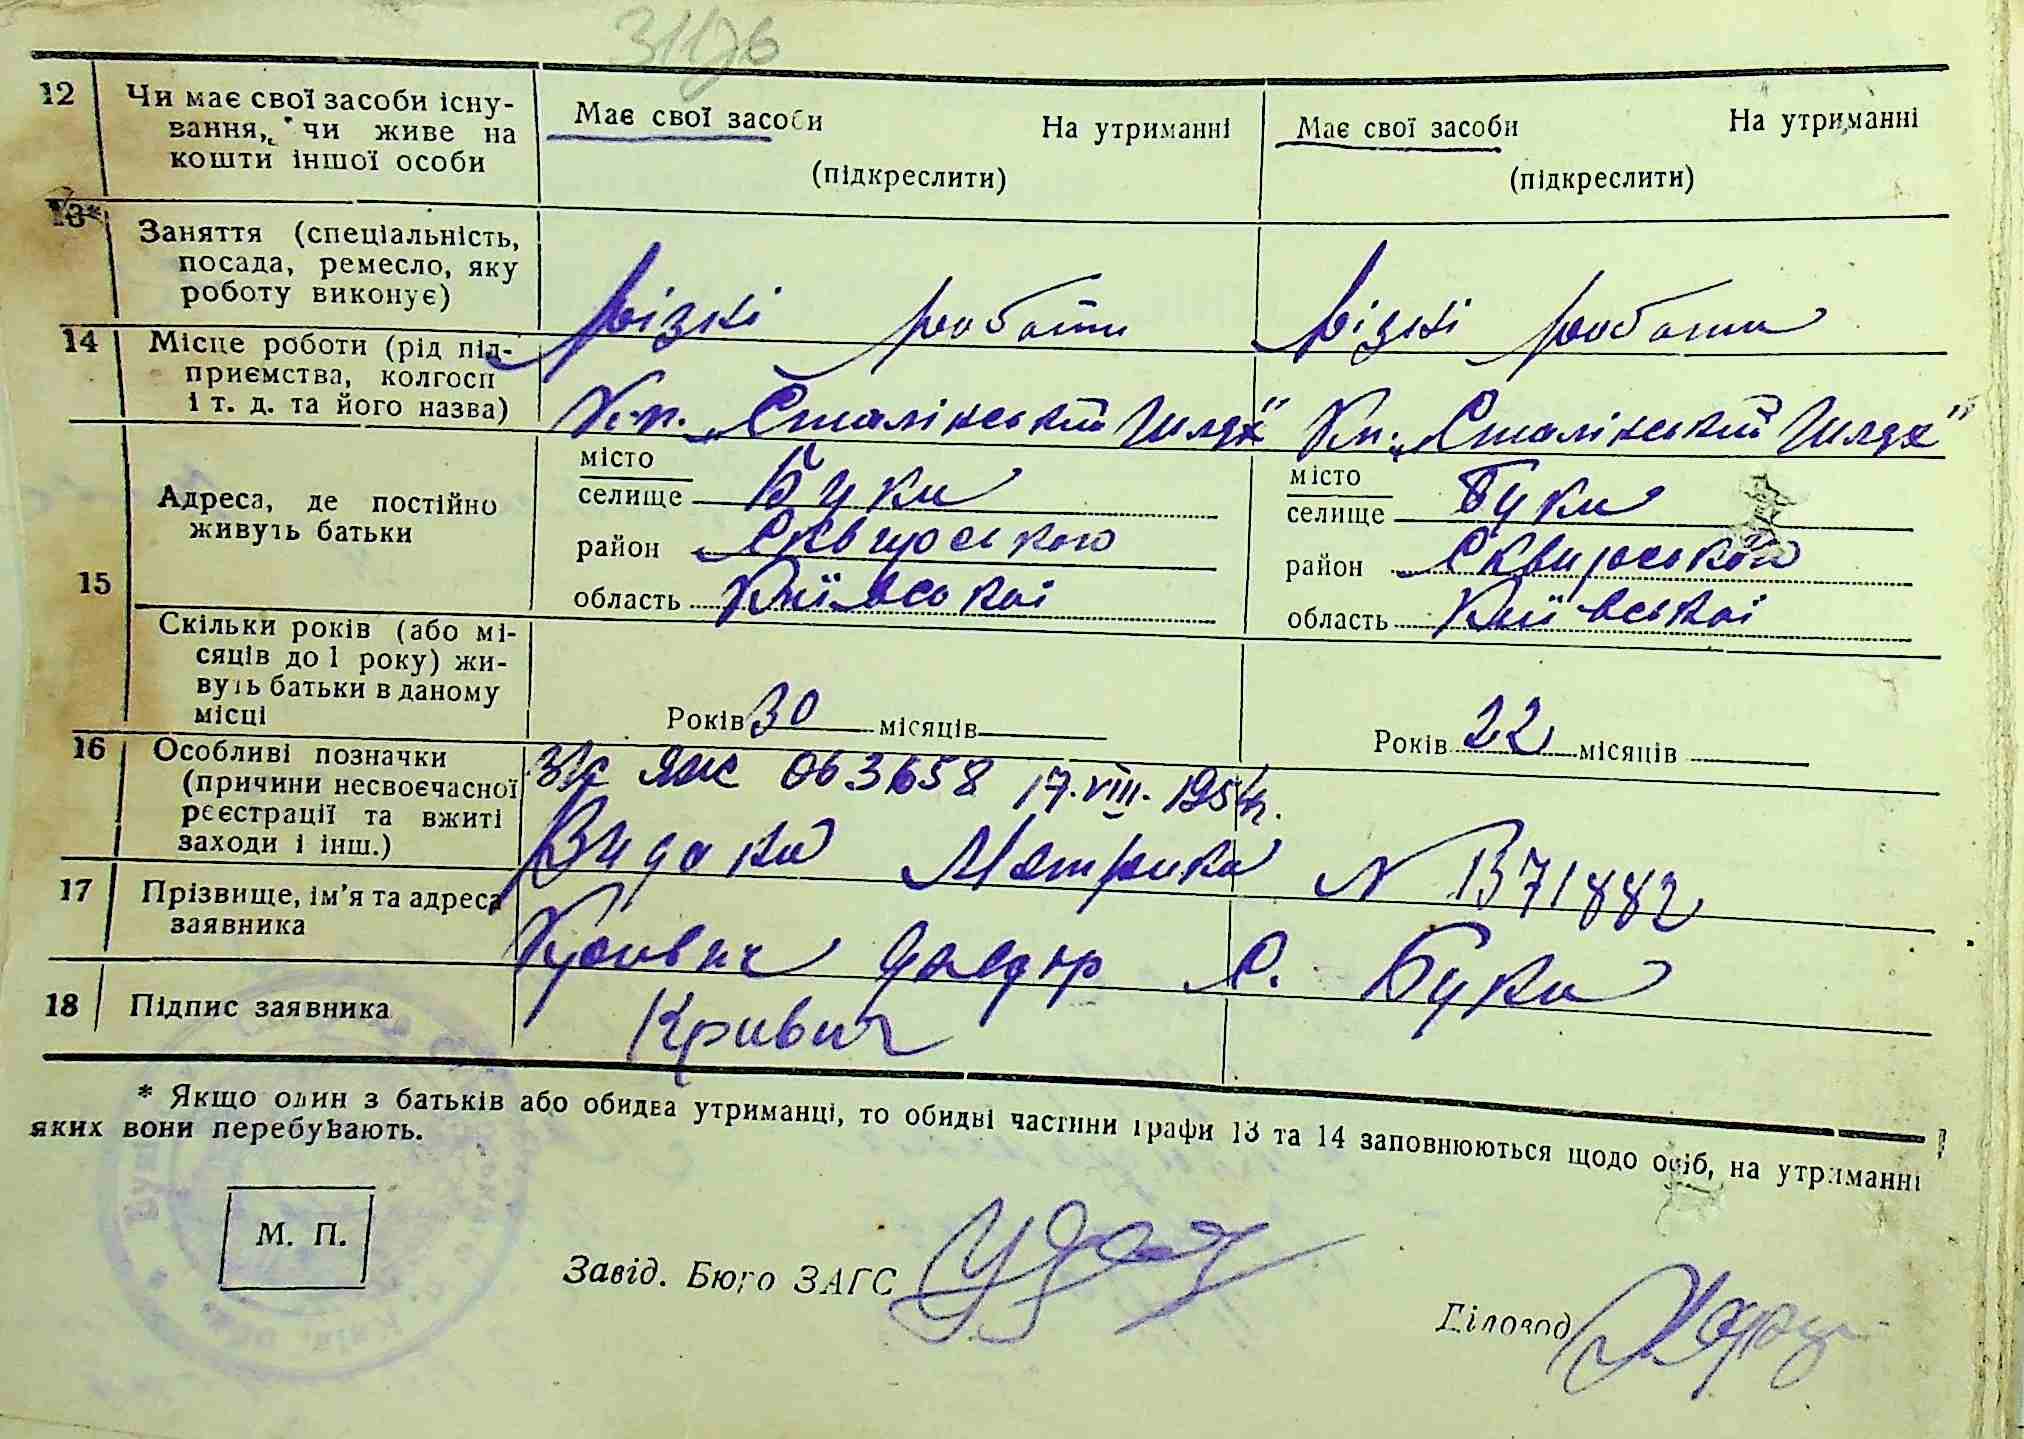 31/76
12 Чи має свої засоби існу-
вання, чи живе на
кошти іншої особи
Має свої засоби На утриманні
(підкреслити)
Має свої засоби На утриманні
(підкреслити)
13* Заняття (спеціальність,
посада, ремесло, яку
роботу виконує)
різні роботи
різні роботи
14 Місце роботи (рід під-
приємства, колгосп
і т. д. та його назва)
К-п. „Сталінський Шлях"
Кп. „Сталінський Шлях"
15 Адреса, де постійно
живуть батьки
місто
селище Буки
район Сквирського
область Київської
місто
селище Буки
район Сквирського
область Київської
Скільки років (або мі-
сяців до 1 року) жи-
вуть батьки в даному
місці
Років 30 місяців
Років 22 місяців
16 Особливі позначки
(причини несвоєчасної
реєстрації та вжиті
заходи і інш.)
063658 17.VIII.1954р.
Видана Метрика № 1371882
17 Прізвище, ім'я та адреса
заявника
Кривич Федір С. Буки
18 Підпис заявника
Кривич
* Якщо один з батьків або обидва утриманці, то обидві частини графи 13 та 14 заповнюються щодо осіб, на утриманні
яких вони перебувають.
М. П.
Завід. Бюро ЗАГС
Діловод